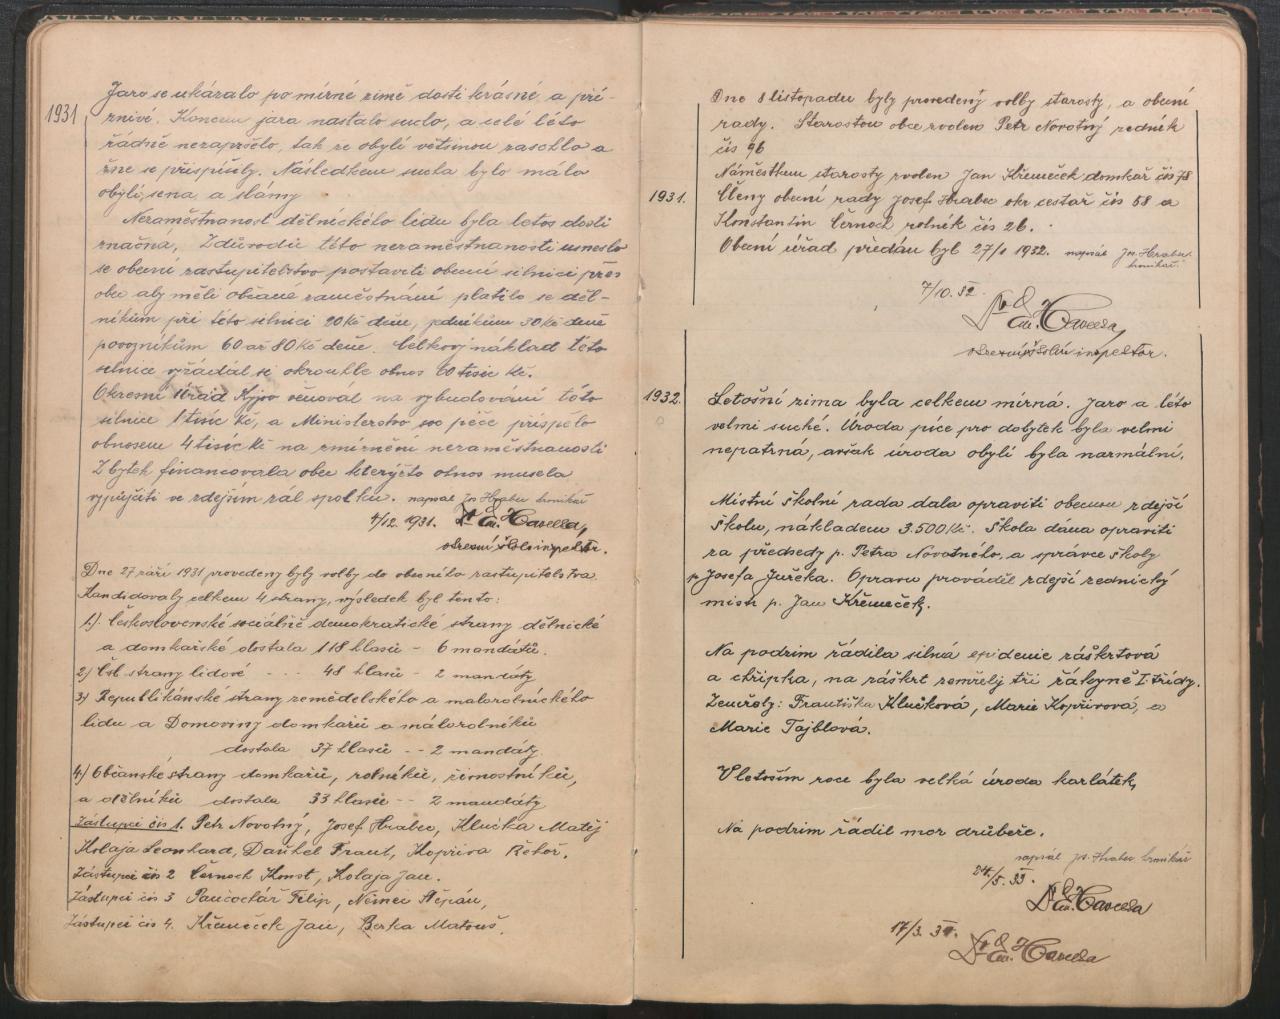 1931
Jaro se ukázalo po mírné zimě dosti krásné a pří-
znivé. Koncem jara nastalo sucho, a celé léto
řádně nezapršelo, tak že obylí většinou zaschlo a
žne se přispíšily. Následkem sucha bylo málo
obylí, sena a slámy
Nezaměstnanost dělnického lidu byla letos dosti
značná, Z důvodů této nezaměstnanosti usneslo
se obecní zastupitelstvo postaviti obecní silnici přes
obec aby měli občané zaměstnání platilo se děl-
níkům při této silnici 20 Kč děně, zedníkům 30 Kč děně
povozníkům 60 až 80 Kč deně. Celkový náklad této
silnice vyžádal si okrouhle obnos 60 tisíc Kč.
Okresní Úřad Kyjov věnoval na vybudování této
silnice 1 tisíc Kč, a Ministerstvo soc péče přispělo
obnosem 4 tisíc Kč na zmírnění nezaměstnanosti
Zbytek financovala obec kterýžto obnos musela
vypůjčiti ve zdejším zál spolku. napsal Js Hrabec kronikář
4/12. 1931. Dr Em. Havelka,
okresní škol. inspektor.
Dne 27 září 1931 provedeny byly volby do obecního zastupitelstva.
Kandidovaly celkem 4 strany, výsledek byl tento:
1). Československé sociálně demokratické strany dělnické
a domkařské dostala 118 hlasů - 6 mandátů.
2) Čsl strany lidové - - - 48 hlasů - 2 mandáty
3) Republikánské strany zemědělského a malorolnického
lidu a Domoviny domkařů a málorolníků
dostala 37 hlasů - - 2 mandáty.
4) Občanské strany domkařů, rolníků, živnostníků,
a dělníků dostala 33 hlasů - - 2 mandáty
Zástupci čís 1. Petr Novotný, Josef Hrabec, Klučka Matěj
Kolaja Leonhard, Daňhel Frant, Kopřiva Řehoř.
Zástupci čis 2 Černoch Konst, Kolaja Jan.
Zástupci čis 3 Pančochář Filip, Němec Štěpán,
Zástupci čis 4. Křemeček Jan, Berka Matouš.
Dne 8 listopadu byly provedený volby starosty, a obecní
rady. Starostou obce zvolen Petr Novotný zedník
čís 96
Náměstkem starosty zvolen Jan Křemeček domkař čís 78
1931. Členy obecní rady Josef Hrabec okr cestař čís 58 a
Konstantin Černoch rolník čís 26.
Obecní úřad předán byl 27/1 1932. napsal Js. Hrabec
kronikář.
7/10. 32. Dr Em. Havelka,
okresní školní inspektor.
1932. Letošní zima byla celkem mírná. Jaro a léto
velmi suché. Úroda píce pro dobytek byla velmi
nepatrná, avšak úroda obylí byla narmální.
Místní školní rada dala opraviti obecnou zdejší
školu, nákladem 3.500 Kč. Škola dána opraviti
za předsedy p. Petra Novotného, a správce školy
p Josefa Juřeka. Opravu prováděl zdejší zednický
mistr p. Jan Křemeček.
Na podzim řádila silná epidemie záškrtová
a chřipka, na záškrt zemřely tři žákyně I. třídy.
Zemřely: Františka Klučková, Marie Kopřivová, a
Marie Tajblová.
V letoším roce byla velká úroda karlátek,
Na podzim řádil mor drůbeže.
napsal Js. Hrabec kronikář
24./5. 33. Dr Em. Havelka
17/3. 34. Dr Em. Havelka